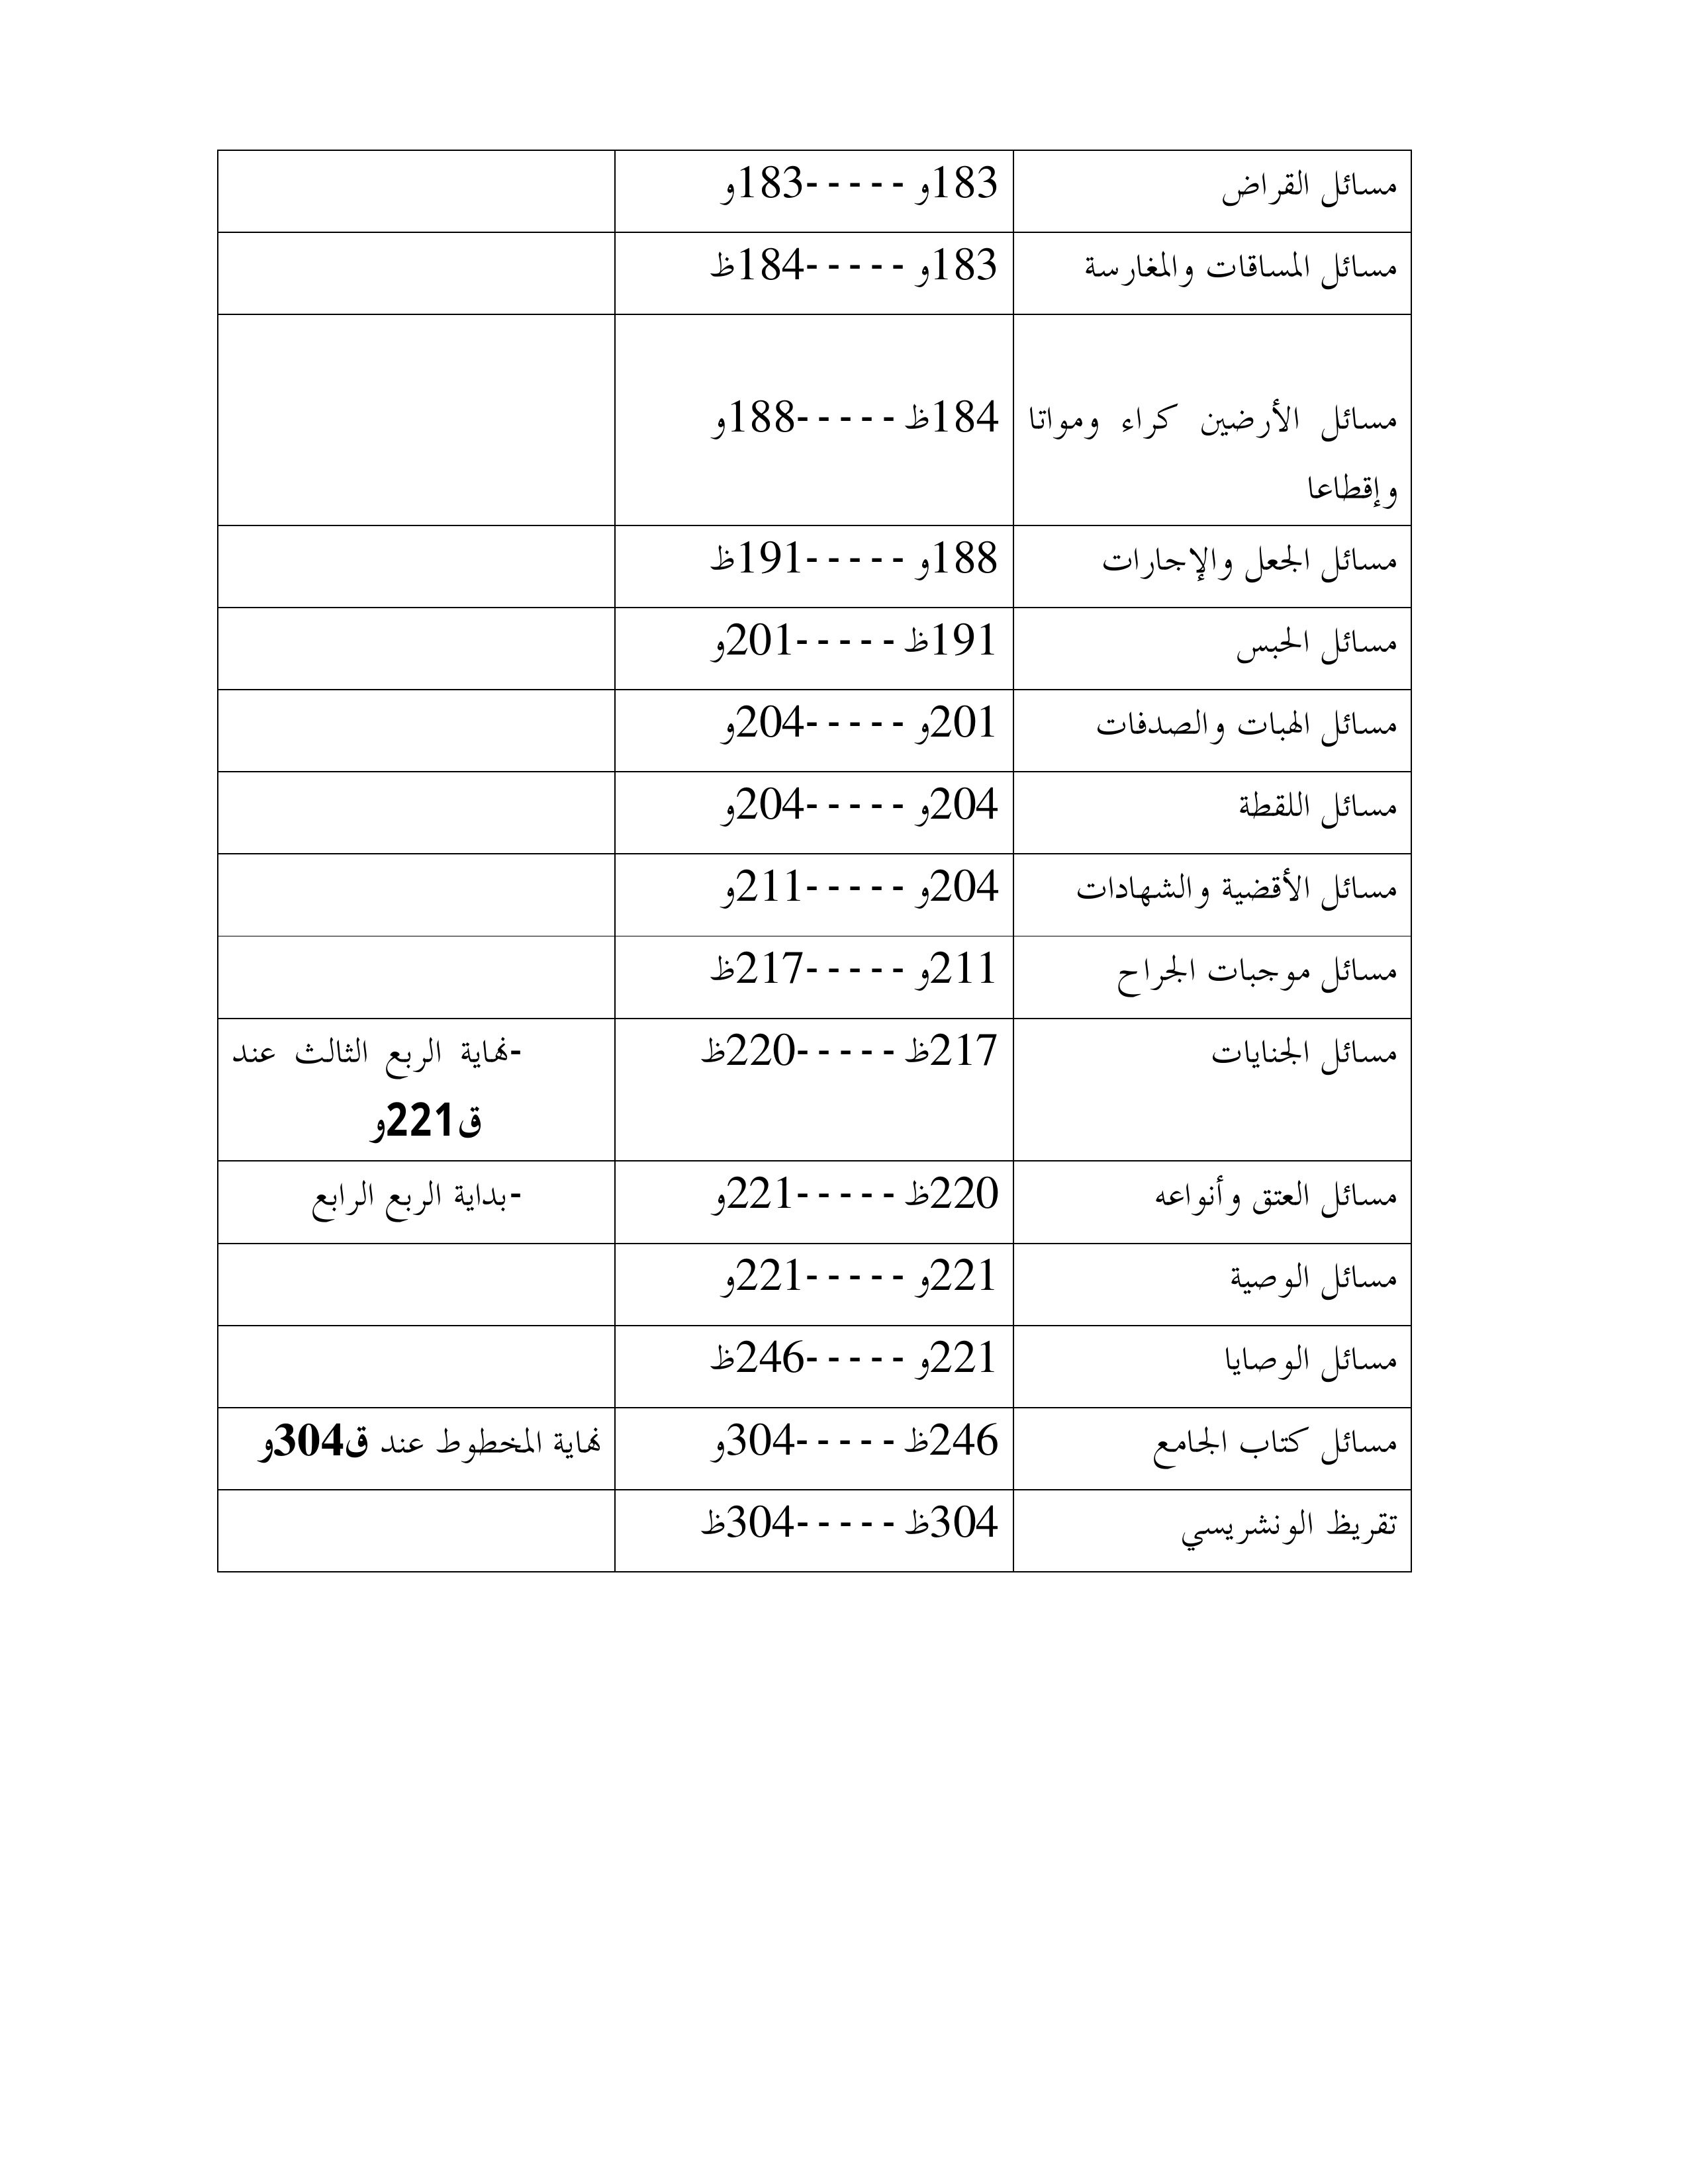 مسائل القراض 183و -----183و
مسائل المساقات والمغارسة 183و -----184ظ
مسائل الأرضين كراء ومواتا 184ظ -----188و
وإقطاعا
مسائل الجعل والإجارات 188و -----191ظ
مسائل الحبس 191ظ -----201و
مسائل الهبات والصدفات 201و -----204و
مسائل اللقطة 204و -----204و
مسائل الأقضية والشهادات 204و -----211و
مسائل موجبات الجراح 211و -----217ظ
مسائل الجنايات 217ظ -----220ظ -نهاية الربع الثالث عند
ق221و
مسائل العتق وأنواعه 220ظ -----221و -بداية الربع الرابع
مسائل الوصية 221و -----221و
مسائل الوصايا 221و -----246ظ
مسائل كتاب الجامع 246ظ -----304و نهاية المخطوط عند ق304و
تقريظ الونشريسي 304ظ -----304ظ